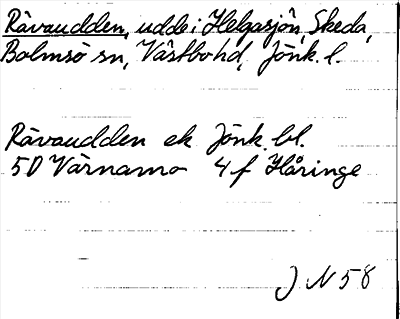 Rävaudden, udde i Helgasjön, Skeda,
Bolmsö sn, Västbo hd, Jönk. l.
Rävaudden ek Jönk. bl.
5D Värnamo 4 f Håringe
J N 58